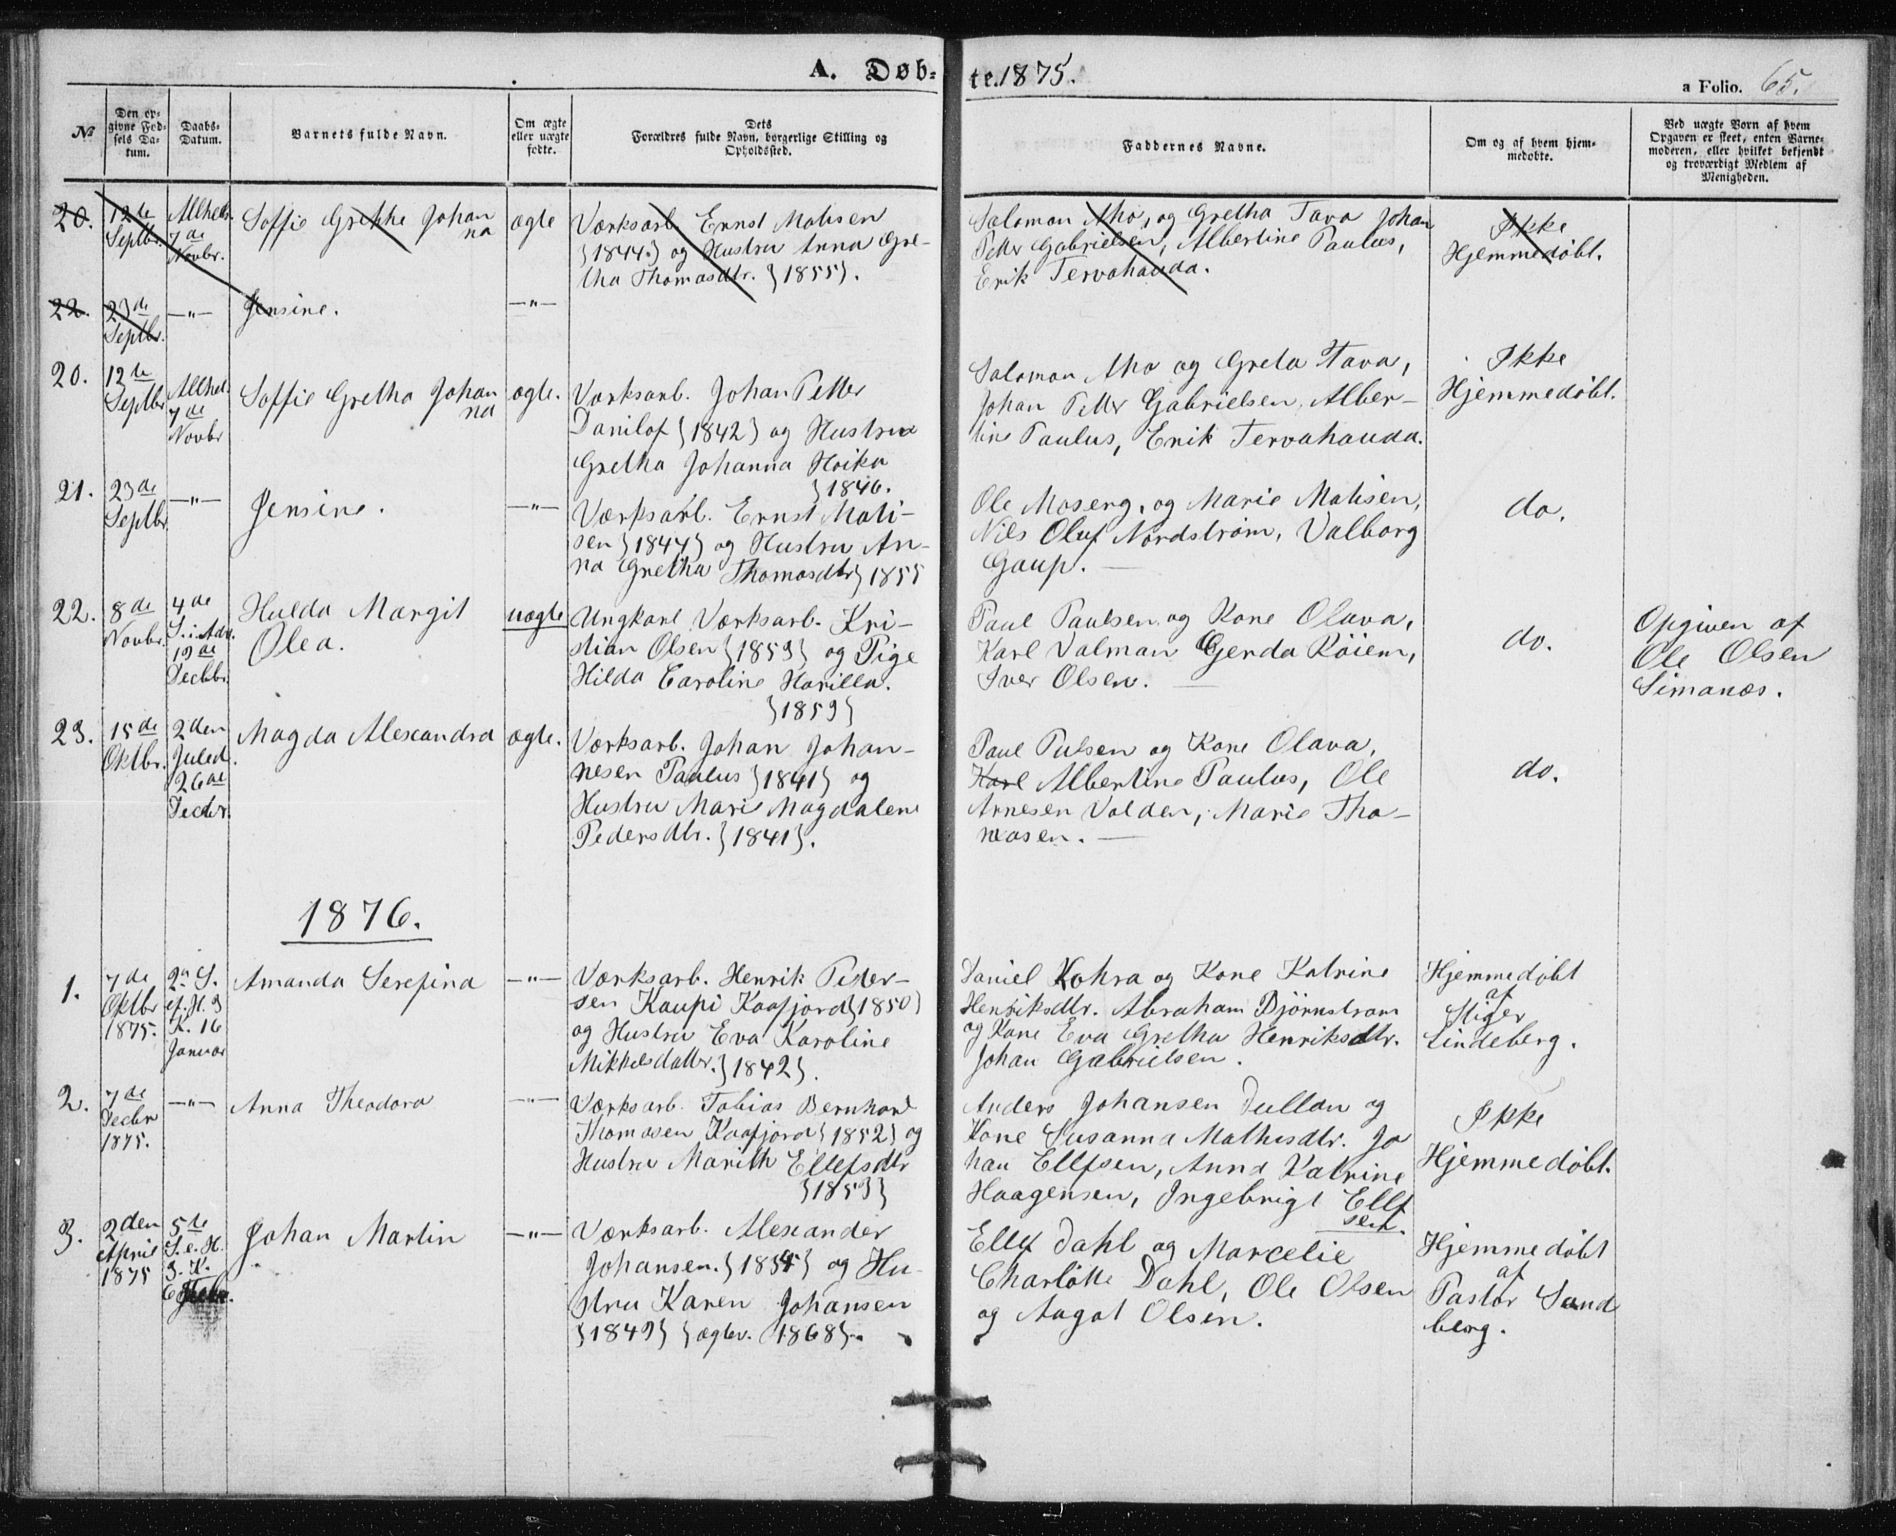 A. Døb-
te. 1875.
a Folio. 65.
No
Den op-
givne Fød-
sels Da-
tum.
Daabs-
Datum.
Barnets fulde Navn.
Om ægte
eller uægte
fødte.
Dets
Forældres fulde Navn, borgerlige Stilling og
Opholdssted.
Faddernes Navne.
Om og af hvem hjem-
medøbte.
Ved uægte Born af hvem
Opgaven er skeet, enten Barne-
moderen, eller hvilket bekjendt
og troværdigt Medlem af
Menigheden.
20.
12te
Septbr.
Allhel.
7de
Novbr.
Soffie Gretha Johan
na
ægte
Værksarb. Ernst Matisen
{1844.} og Hustru Anna Gre-
tha Thomasdtr. {1855}.
Salomon Aho, og Gretha Tava Johan
Petter Gabrielsen, Albertine Paulus,
Erik Tervahauda.
Ikke
Hjemmedøbt.
22.
23de
Septbr.
—"—
Jensine.
—"—
20.
12te
Septbr
Allhel.
7de
Novbr
Soffie Gretha Johan
na
ægte.
Værksarb. Johan Petter
Danilof {1842} og Hustru
Gretha Johanna Hoika
{1846.
Salomon Aho og Greta Tava,
Johan Petter Gabrielsen, Alber-
tine Paulus, Erik Tervahauda.
Ikke
Hjemmedøbt.
21.
23de
Septbr
—"—
Jensine.
—"—
Værksarb. Ernst Mati-
sen {1844} og Hustru An-
na Gretha Thomasdtr} 1855
Ole Moseng, og Marie Matisen,
Nils Oluf Nordstrøm, Valborg
Gaup. —
do.
22.
8de
Novbr.
4de
S. i. Adv.
19de
Decbr.
Hulda Margit
Olea.
uægte
Ungkarl Værksarb. Kri-
stian Olsen {1853} og Pige
Hilda Caroline Harilla.
{1859}
Paul Paulsen og Kone Olava,
Karl Valman Gerda Röiem,
Iver Olsen. —
do.
Opgiven af
Ole Olsen
Simanæs.
23.
15de
Oktbr.
2den
Juled.
26de
Decbr.
Magda Alexandra
ægte.
Værksarb. Johan Johan-
nesen Paulus {1841} og
Hustru Mari Magdalene
Pedersdtr. {1841}.
Paul Pulsen og Kone Olava,
Karl Albertine Paulus, Ole
Arnesen Volden, Marie Tho-
masen. —
do.
1876.
1.
7de
Oktbr
1875.
2n S.
ef. H. 3
K. 16
Januar
Amanda Serefina
—"—
Værksarb. Henrik Peder-
sen Kaupi Kaafjord {1850}
og Hustru Eva Karoline
Mikkelsdatter. {1842}.
Daniel Kohra og Kone Katrine
Henriksdtr. Abraham Björnstrom
og Kone Eva Gretha Henriksdtr.
Johan Gabrielsen.
Hjemmedøbt
af
Stiger
Lindeberg.
2.
7de
Decbr
1875.
—"—
Anna Theodora
—"—
Værksarb. Tobias Bernhard
Thomasen Kaafjord {1852} og
Hustru Marith Ellefsdtr
{1853}
Anders Johansen Dullan og
Kone Susanna Mathisdtr. Jo
han Ellefsen, Anna Katrine
Haagensen, Ingebrigt Ellef
sen.
Ikke
Hjemmedøbt.
3.
2den
April
1875
5te
S. e. H.
3. K.
6 Febr.
Johan Martin
—"—
Værksarb. Alexander
Johansen. {1854} og Hu-
stru Karen Johansen
{1849} {ægtev. 1868}.
Ellef Dahl og Marcelie
Charlotte Dahl, Ole Olsen
og Aagot Olsen.
Hjemmedøbt
af
Pastor Sand
berg.